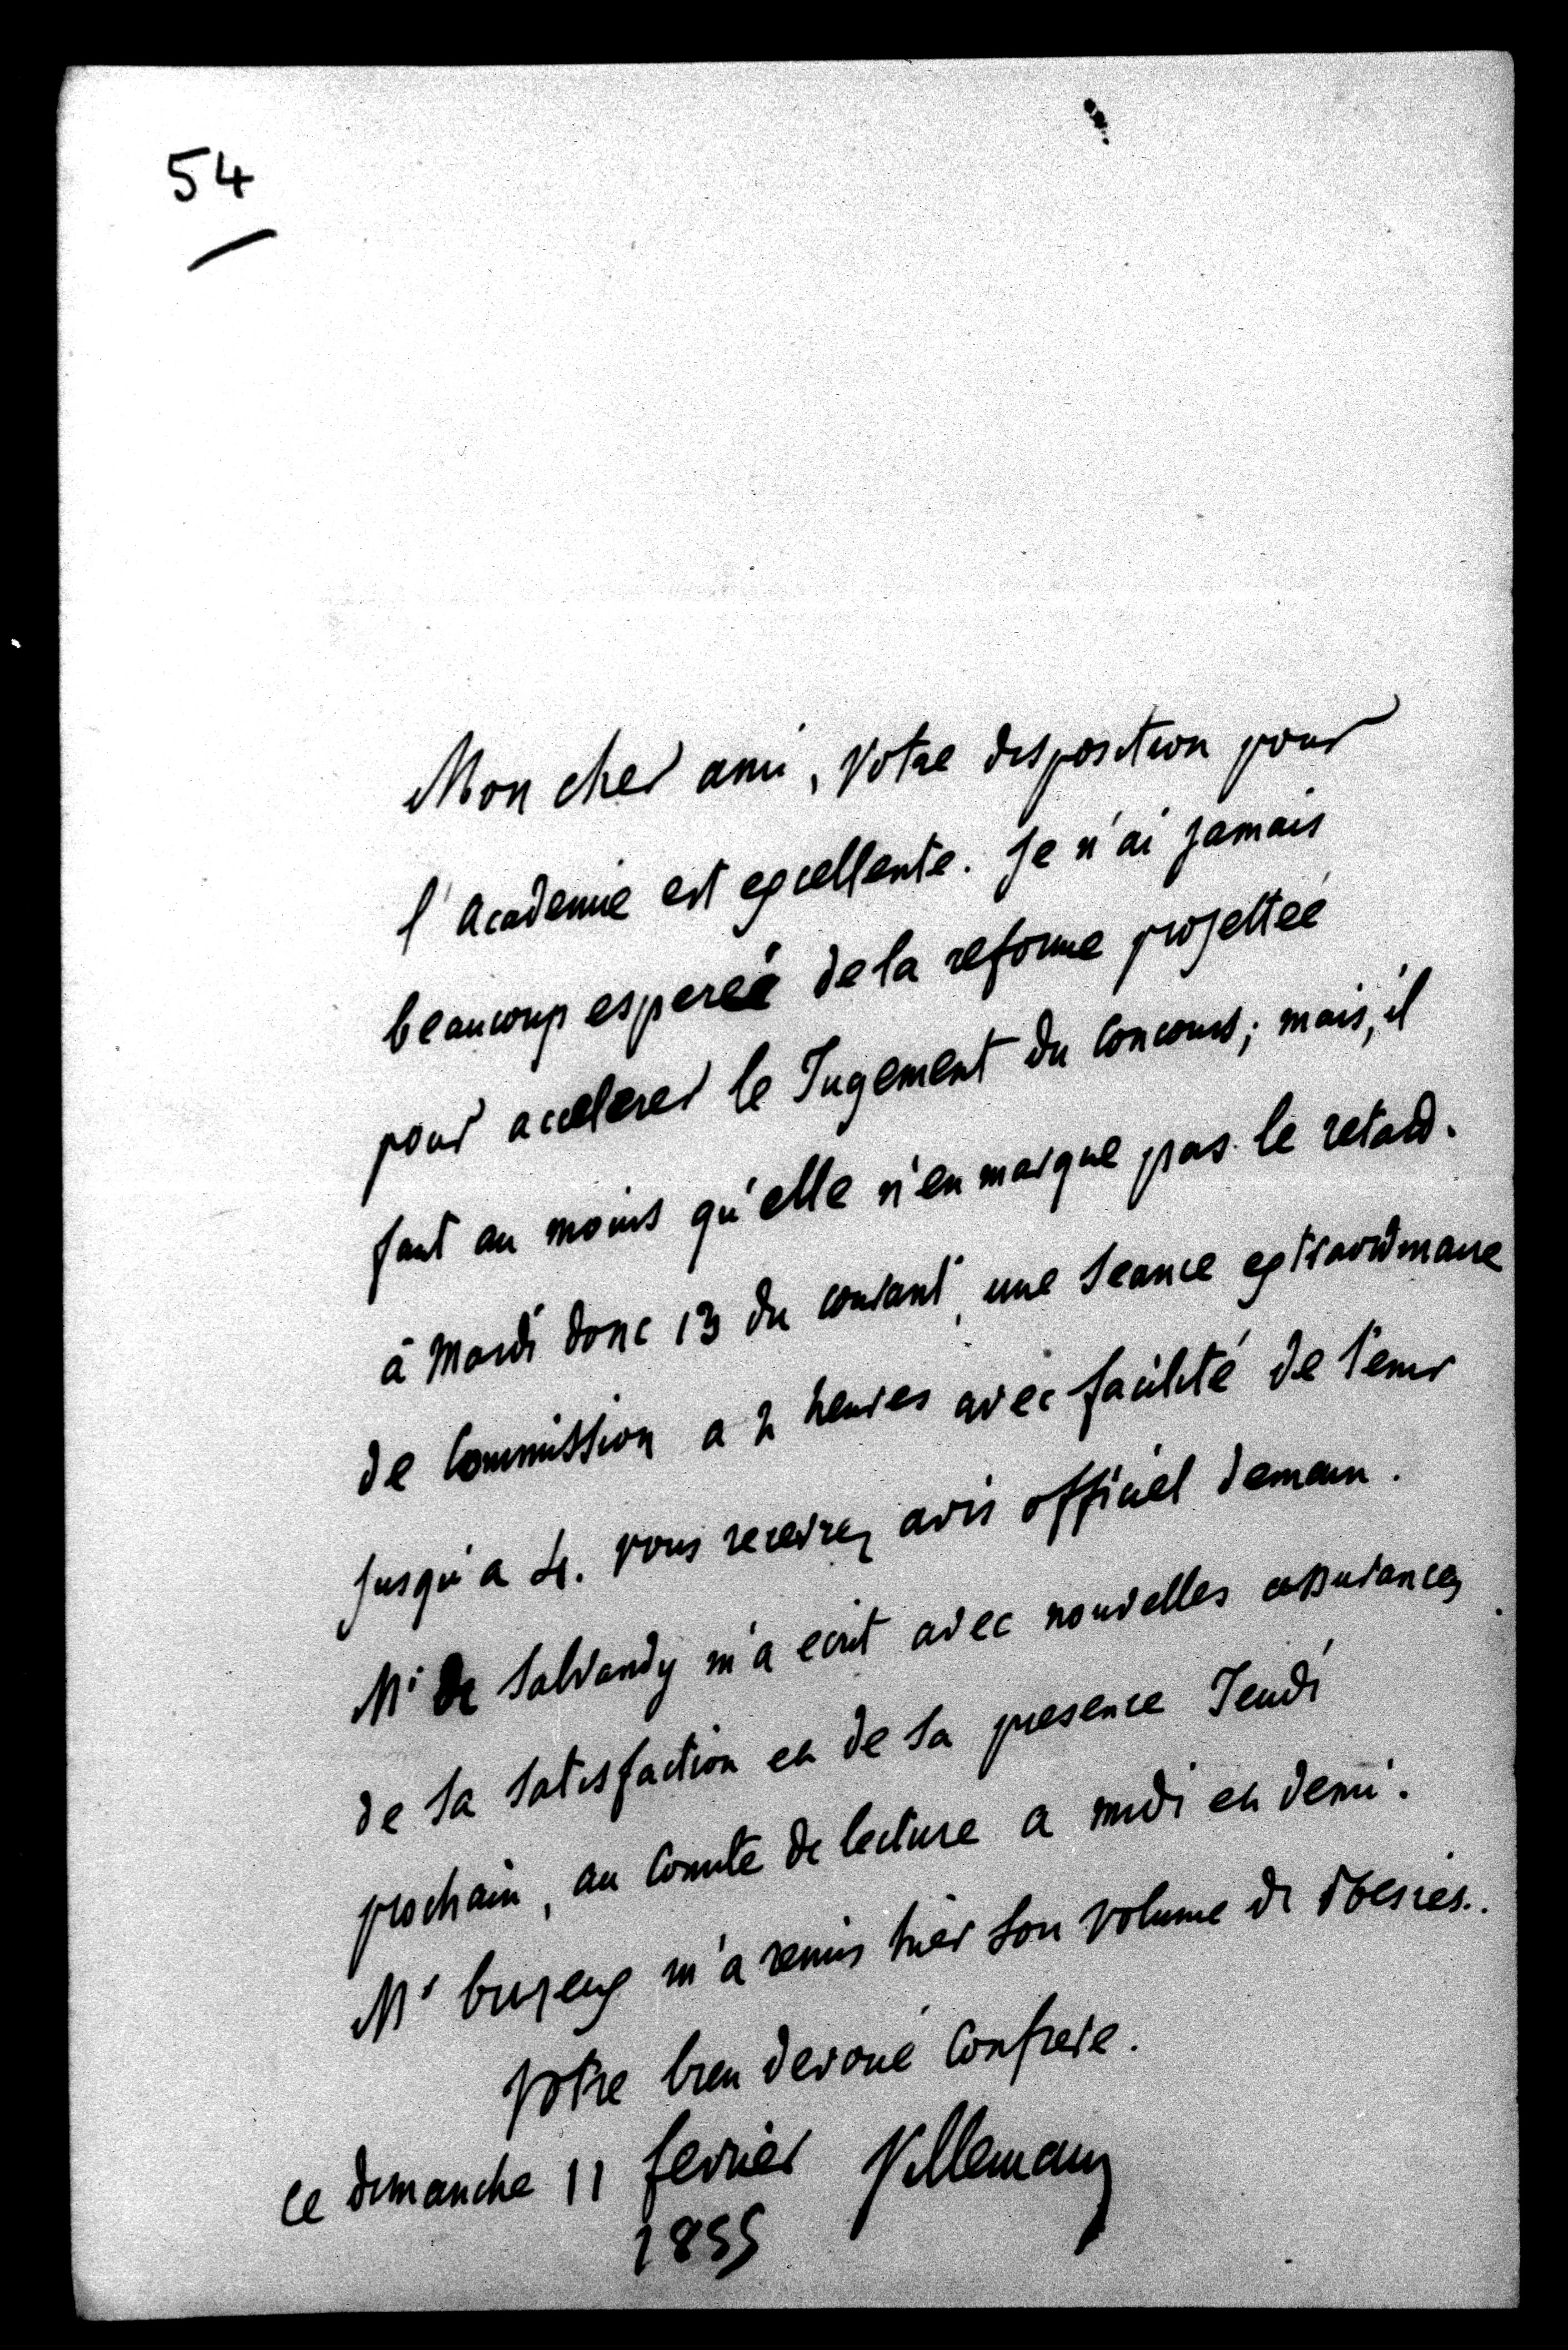 54
Mon cher ami, Votre disposition pour
l'Academie est excellente. Je n'ai jamais
beaucoup espereé de la reforme projettée
pour accelerer le Jugement du Concours; mais, il
faut au moins qu'elle n'en marque pas le retard.
à Mardi donc 13 du courant, une Seance extraordinaire
de Commission a 2 heures avec facilité de tenir
jusqu'a 4. vous recevrez avis officiel demain.
Mr de Salvandy m'a ecrit avec nouvelles assurances
de sa satisfaction et de sa presence Jeudi
prochain, au Comité de lecture a midi et demi.
Mr m'a remis hier son volume de
Votre bien devoué Confrere.
ce dimanche 11 fevrier Villemain
1855